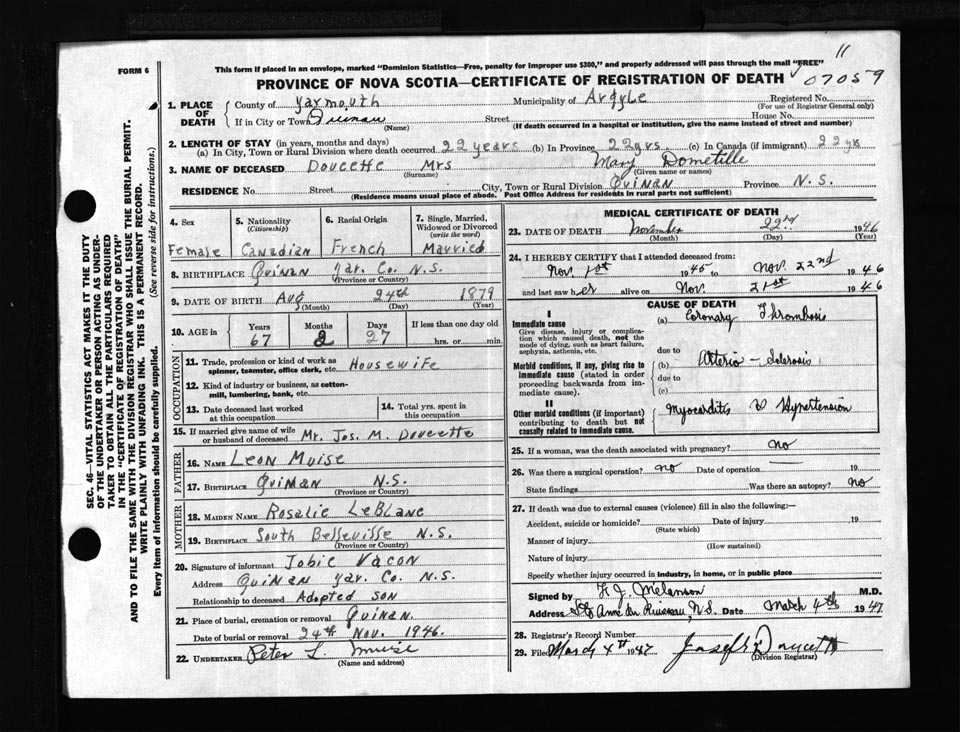 11
FORM 6
This form if placed in an envelope, marked "Dominion Statistics—Free, penalty for improper use $300," and properly addressed will pass through the mail "FREE"
PROVINCE OF NOVA SCOTIA—CERTIFICATE OF REGISTRATION OF DEATH
07059
SEC. 46—VITAL STATISTICS ACT MAKES IT THE DUTY
OF THE UNDERTAKER OR PERSON ACTING AS UNDER-
TAKER TO OBTAIN ALL THE PARTICULARS REQUIRED
IN THE "CERTIFICATE OF REGISTRATION OF DEATH"
AND TO FILE THE SAME WITH THE DIVISION REGISTRAR WHO SHALL ISSUE THE BURIAL PERMIT.
WRITE PLAINLY WITH UNFADING INK. THIS IS A PERMANENT RECORD.
Every item of Information should be carefully supplied. (See reverse side for instructions.)
1. PLACE OF DEATH
County of Yarmouth Municipality of Argyle Registered No.
(For use of Registrar General only)
If in City or Town Quinan Street House No.
(Name) (If death occurred in a hospital or institution, give the name instead of street and number)
2. LENGTH OF STAY (in years, months and days)
(a) In City, Town or Rural Division where death occurred 22 years (b) In Province 22 yrs. (c) In Canada (if immigrant) 22 yrs
3. NAME OF DECEASED Doucette Mrs Mary Dometille
(Surname) (Given name or names)
RESIDENCE No. Street City, Town or Rural Division Quinan Province N.S.
(Residence means usual place of abode. Post Office Address for residents in rural parts not sufficient)
4. Sex 5. Nationality (Citizenship) 6. Racial Origin 7. Single, Married, Widowed or Divorced (write the word)
Female Canadian French Married
8. BIRTHPLACE Quinan Yar. Co. N.S.
9. DATE OF BIRTH Aug 24th 1879
(Month) (Day) (Year)
10. AGE in Years Months Days If less than one day old
67 2 27 hrs. or min.
OCCUPATION
11. Trade, profession or kind of work as spinner, teamster, office clerk, etc. Housewife
12. Kind of industry or business, as cotton-mill, lumbering, bank, etc.
13. Date deceased last worked at this occupation
14. Total yrs. spent in this occupation
15. If married give name of wife or husband of deceased Mr. Jos. M. Doucette
FATHER
16. NAME Leon Muise
17. BIRTHPLACE Quinan N.S.
(Province or Country)
MOTHER
18. MAIDEN NAME Rosalie LeBlanc
19. BIRTHPLACE South Belleville N.S.
(Province or Country)
20. Signature of informant Jobie Vacon
Address Quinan Yar. Co. N.S.
Relationship to deceased Adopted son
21. Place of burial, cremation or removal Quinan.
Date of burial or removal 24th Nov. 1946.
22. UNDERTAKER Peter L. Muise
(Name and address)
MEDICAL CERTIFICATE OF DEATH
23. DATE OF DEATH November 22nd 1946
(Month) (Day) (Year)
24. I HEREBY CERTIFY that I attended deceased from:
Nov. 1st 1945 to Nov. 22nd 1946
and last saw her alive on Nov. 21st 1946
CAUSE OF DEATH
I
Immediate cause
Give disease, injury, or complication which caused death, not the mode of dying, such as heart failure, asphyxia, asthenia, etc.
(a) Coronary Thrombosis
due to
Morbid conditions, if any, giving rise to immediate cause (stated in order proceeding backwards from immediate cause).
(b) Arterio-Sclerosis
due to
(c)
II
Other morbid conditions (if important) contributing to death but not causally related to immediate cause.
Myocarditis Hypertension
25. If a woman, was the death associated with pregnancy? no
26. Was there a surgical operation? no Date of operation — 19
State findings Was there an autopsy? no
27. If death was due to external causes (violence) fill in also the following:—
Accident, suicide or homicide? Date of injury 19
(State which)
Manner of injury
(How sustained)
Nature of injury
Specify whether injury occurred in industry, in home, or in public place
Signed by F. J. Melanson M.D.
Address Ste Anne du Ruisseau, N.S. Date March 4th 1947
28. Registrar's Record Number
29. Filed March 4th 1947 Joseph Doucette
(Division Registrar)